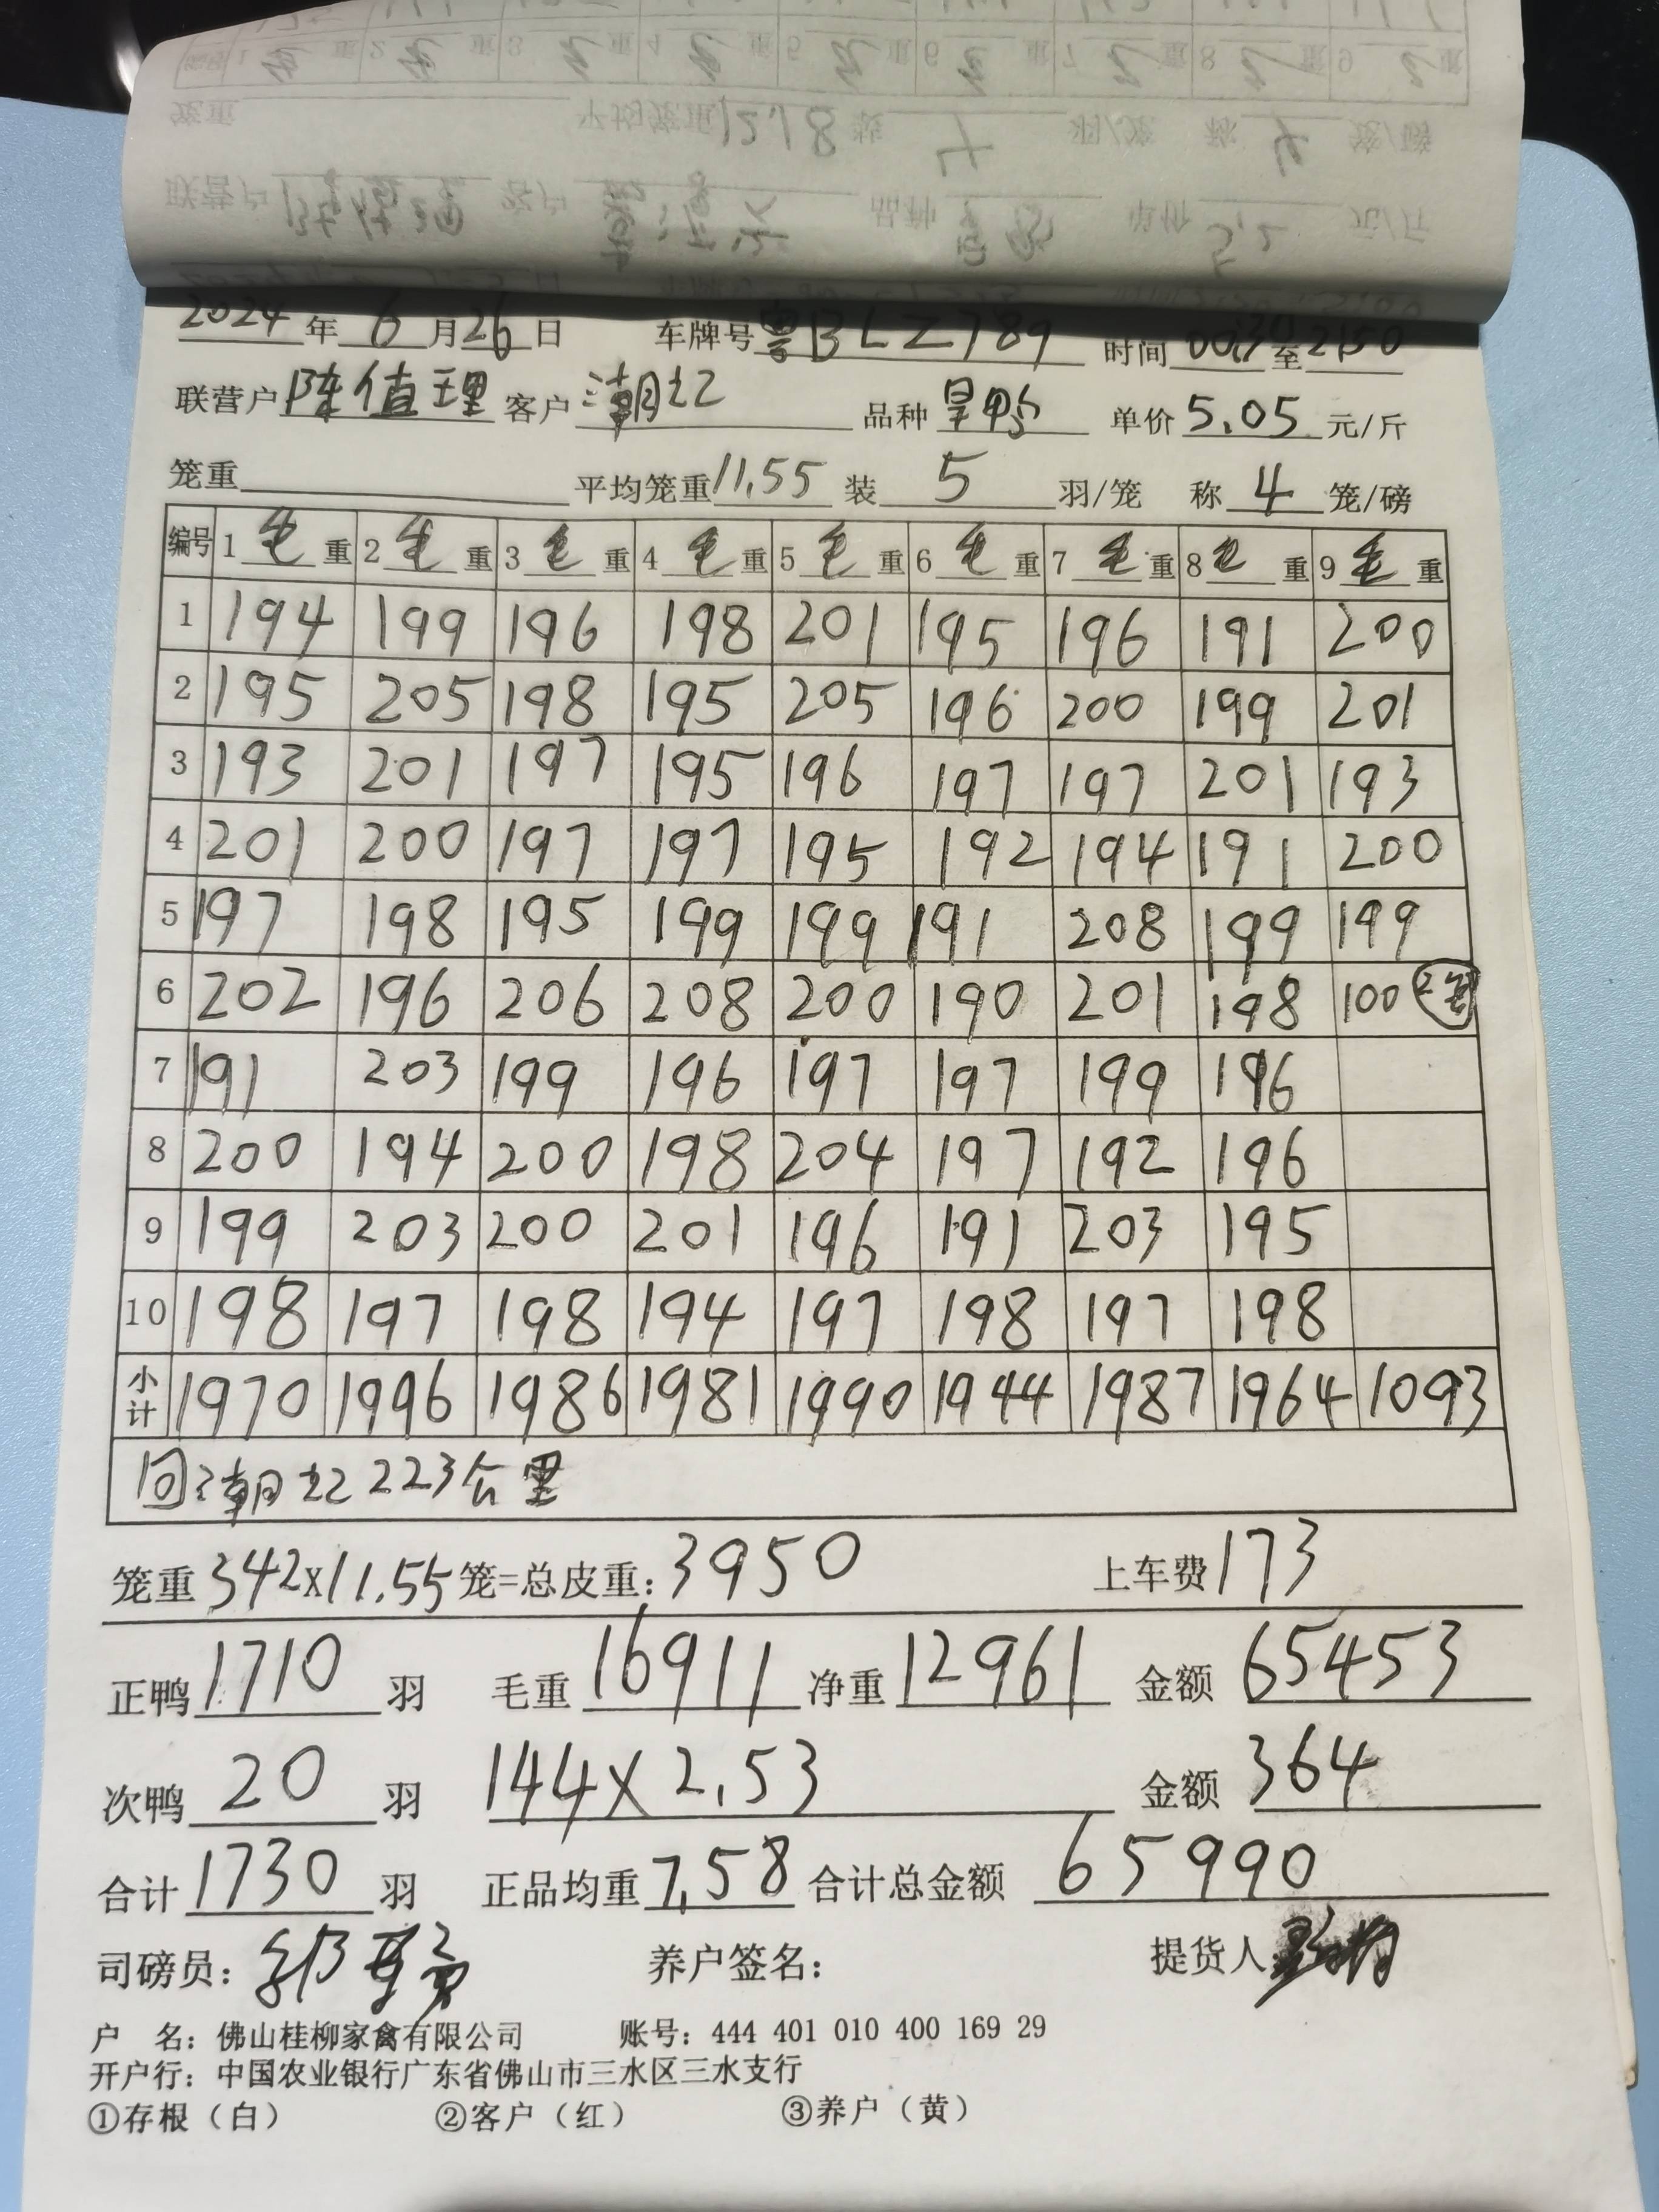 2024 年 6 月 26 日 车牌号 粤BLZ789 时间 00:30 至 2150
联营户 陈值理 客户 潮汕 品种 旱鸭 单价 5.05 元/斤
笼重 平均笼重 11.55 装 5 羽/笼 称 4 笼/磅
编号 1 毛 重 2 毛 重 3 毛 重 4 毛 重 5 毛 重 6 毛 重 7 毛 重 8 毛 重 9 毛 重
1 194 199 196 198 201 195 196 191 200
2 195 205 198 195 205 196 200 199 201
3 193 201 197 195 196 197 197 201 193
4 201 200 197 197 195 192 194 191 200
5 197 198 195 199 199 191 208 199 199
6 202 196 206 208 200 190 201 198 100 2笼
7 191 203 199 196 197 197 199 196
8 200 194 200 198 204 197 192 196
9 199 203 200 201 196 191 203 195
10 198 197 198 194 197 198 197 198
小计 1970 1996 1986 1981 1990 1944 1987 1964 1093
回潮汕 223公里
笼重 342x11.55 笼=总皮重: 3950 上车费 173
正鸭 1710 羽 毛重 16911 净重 12961 金额 65453
次鸭 20 羽 144x2.53 金额 364
合计 1730 羽 正品均重 7.58 合计总金额 65990
司磅员: 养户签名: 提货人
户 名: 佛山桂柳家禽有限公司 账号: 444 401 010 400 169 29
开户行: 中国农业银行广东省佛山市三水区三水支行
①存根（白） ②客户（红） ③养户（黄）